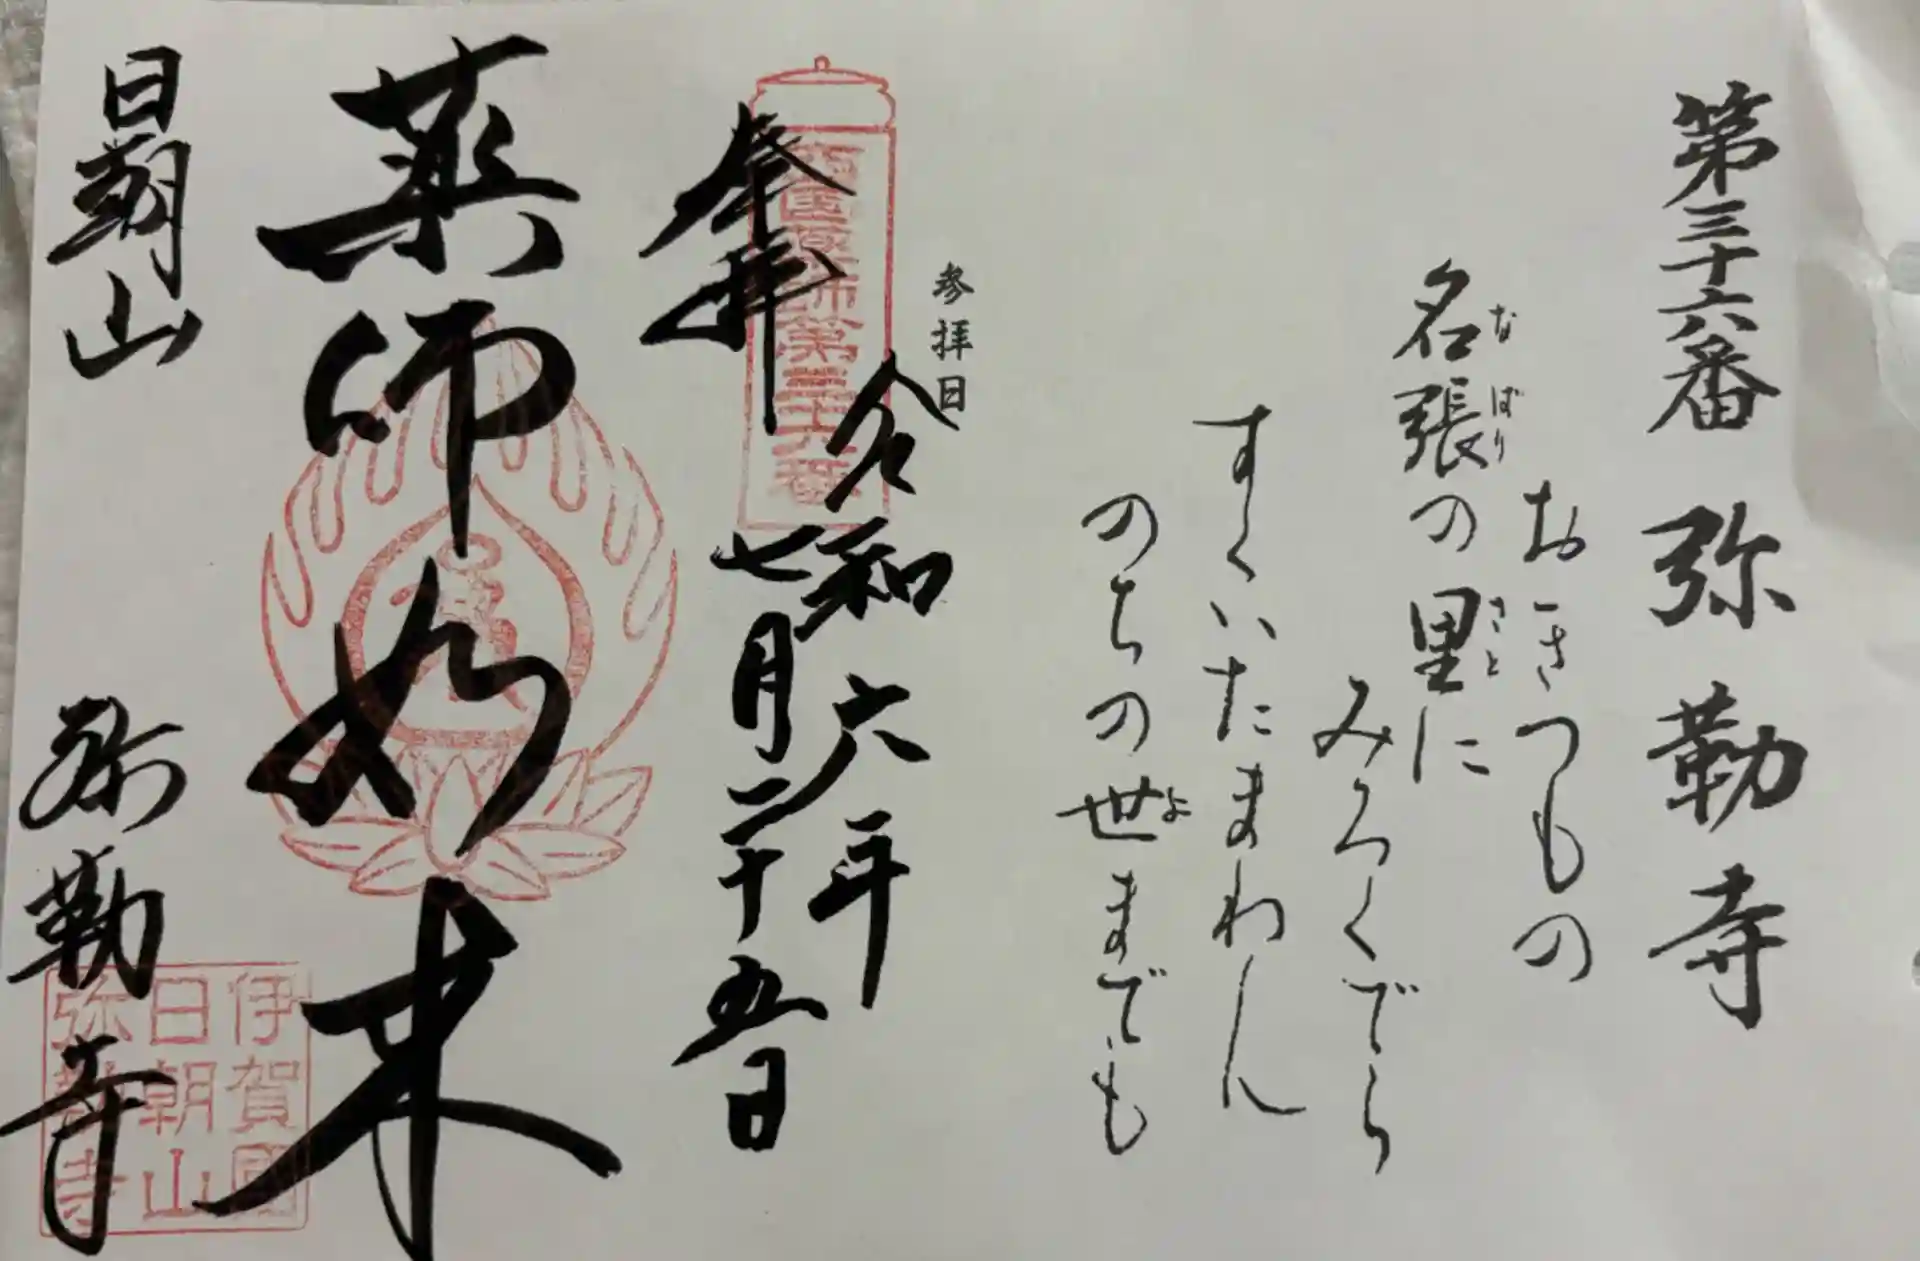 第三十六番 弥勒寺
おきつもの
なばり さと
名張の里に
みろくでら
すくいたまわん
よ
のちの世までも
参拝日
令和六年
七月二十五日
奉拝
西国薬師第三十六番
薬師如来
日朝山 弥勒寺
伊賀國
日朝山
弥勒寺